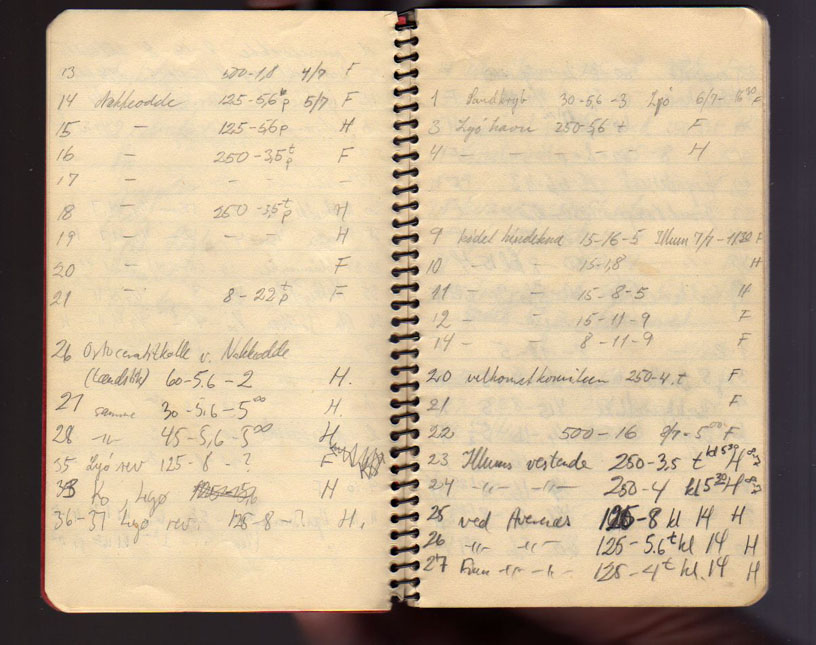 13 500-1,8 4/7 F
14 Nakkeodde 125-5,6 p 5/7 F
15 - 125-5,6 p H
16 - 250-3,5 t p F
17 - - -
18 - 250-3,5 t p H
19 - - - - H
20 - F
21 - 8-22 t p F
26 Ortoceratitkalk v. Nakkeodde
60-5,6-2 H.
27 samme 30-5,6-5 00 H.
28 -"- 45-5,6-5 00 H
35 Lyø rev 125-8-? F
Ko, Lyø H
36-37 Lyø rev 125-8-? H.
1 30-5,6-3 Lyø 6/7- 5 30 F
3 Lyø havn 250-5,6 t F
4 - - - H
9 15-16-5 Illum 7/7-1130 F
10 15-1,8 H
11 - - 15-8-5 H
12 - - 15-11-9 F
14 - - 8-11-9 F
20 velkomstkomiteen 250-4. t F
21 F
22 500-16 9/7-5 00 F
23 Illums vestende 250-3,5 t kl 5 30 H
24 -"- -"- 250-4 kl 5 30 H
25 ved Avernæs 125-8 kl 14 H
26 -"- -"- 125-5.6 t kl 14 H
27 -"- -"- 125-4 t kl. 14 H